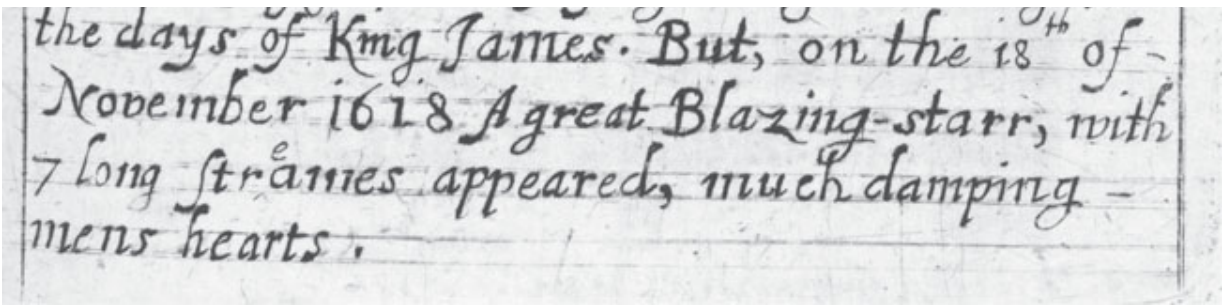 the days of King James. But, on the 18th of -
November 1618 A great Blazing-starr, with
7 long streames appeared, much damping -
mens hearts .